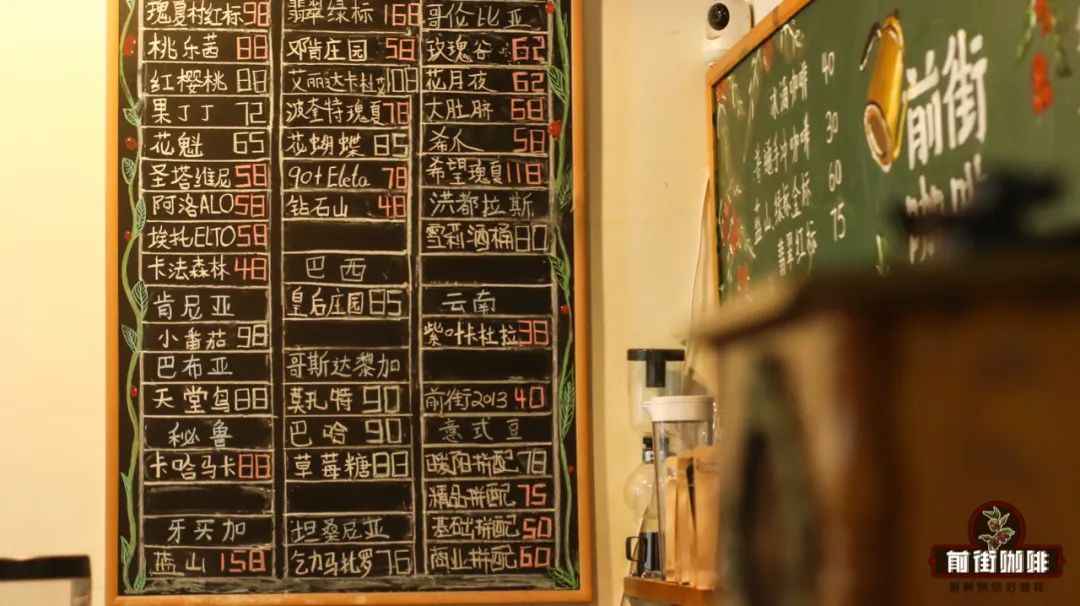 瑰夏村红标98
桃乐茜 88
红樱桃 88
果丁丁 72
花魁 65
圣塔维尼 58
阿洛ALO 58
埃托ELTO 58
卡法森林 48
肯尼亚
小番茄 98
巴布亚
天堂鸟 88
秘鲁
卡哈马卡 88
牙买加
蓝山 158
翡翠绿标 168
邓肯庄园 58
艾丽达卡杜艾108
波奎特瑰夏 78
花蝴蝶 85
90+Eleta 78
钻石山 48
巴西
皇后庄园 85
哥斯达黎加
莫扎特 90
巴哈 90
草莓糖 88
坦桑尼亚
乞力马扎罗 76
哥伦比亚
玫瑰谷 62
花月夜 62
大肚脐 68
希爪 58
希望瑰夏 118
洪都拉斯
雪莉酒桶 80
云南
紫叶卡杜拉 38
前街2013 40
意式豆
暖阳拼配 78
精品拼配 75
基础拼配 50
商业拼配 60
前街
咖啡
冰滴咖啡 40
30
60
翡翠红标 75
前街咖啡